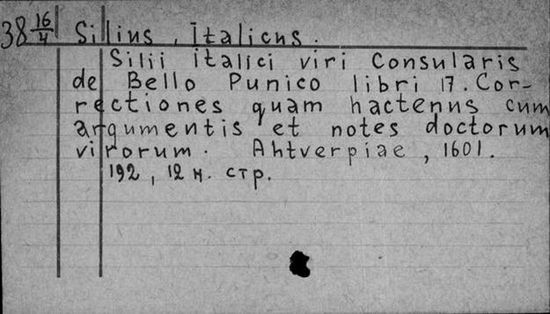 38 16/4 Silius, Italicus.
Silii Italici viri Consularis
de Bello Punico libri 17. Cor-
rectiones quam hactenus cum
argumentis et notes doctorum
virorum. Ahtverpiae, 1601.
192, 12 н. стр.